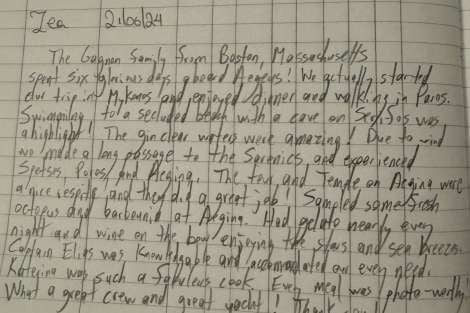 Tea 21/06/24
The Gagnon family from Boston, Massachusetts
spent six glorious days aboard! We actually started
our trip in Mykonos and enjoyed dinner and walking in Paros.
Swimming to a secluded beach with a cave on was
a highlight! The gin clear waters were amazing! Due to wind
we made a long passage to the and experienced
Spetses Poros, and Aegina. The and Temple on Aegina were
a nice respite, and they did a great job! Sampled some fresh
octopus and barbounia at Aegina. Had gelato nearly every
night and wine on the bow enjoying the stars and sea breeze.
Captain Elias was knowledgable and accommodated our every need.
Katerina was such a fabulous cook. Every meal was photo-worthy!
What a great crew and great yacht! Thank you!